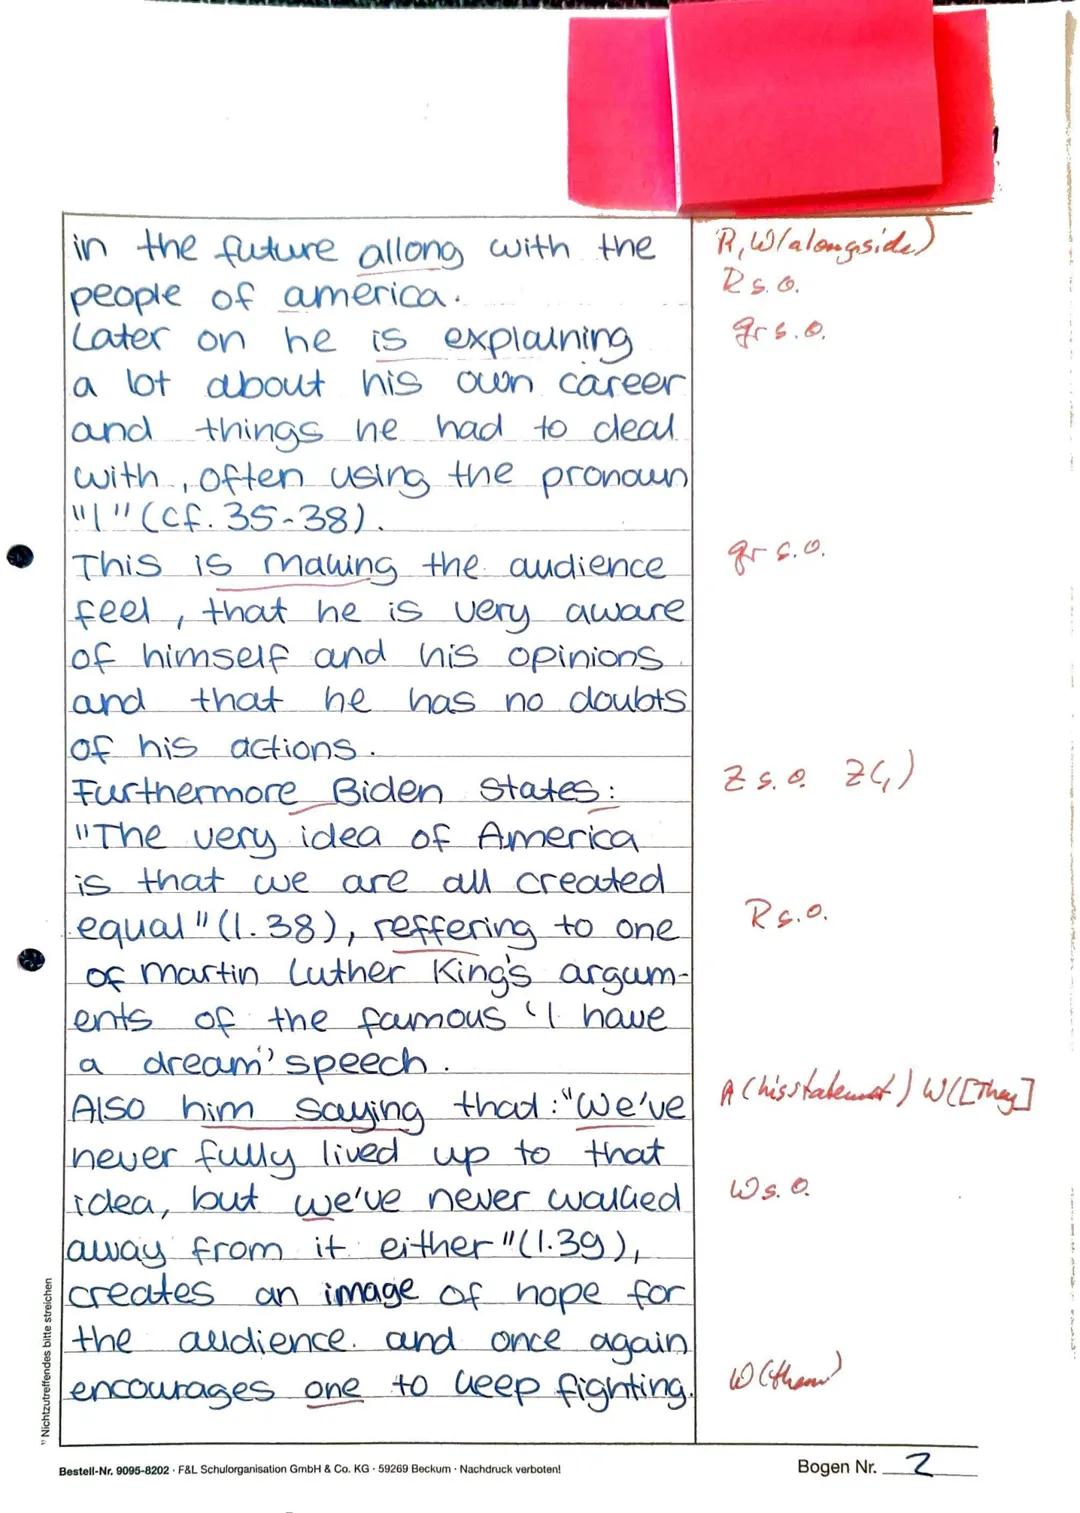 in the future allong with the
R, W(alongside)
people of america.
R s.o.
Later on he is explaining
gr s.o.
a lot about his own career
and things he had to deal
with, often using the pronoun
"I" (cf. 35-38).
This is making the audience
gr s.o.
feel, that he is very aware
of himself and his opinions
and that he has no doubts
of his actions.
Furthermore Biden states:
Z s.o. Z(,)
"The very idea of America
is that we are all created
equal" (l. 38), reffering to one
R s.o.
of martin Luther King's argum-
ents of the famous 'I have
a dream' speech.
Also him saying that: "We've
A (his statement) W([They]
never fully lived up to that
idea, but we've never walked
W s.o.
away from it either" (l.39),
creates an image of hope for
the audience and once again
encourages one to keep fighting.
W (them)
*) Nichtzutreffendes bitte streichen
Bestell-Nr. 9095-8202 · F&L Schulorganisation GmbH & Co. KG · 59269 Beckum · Nachdruck verboten!
Bogen Nr. 2